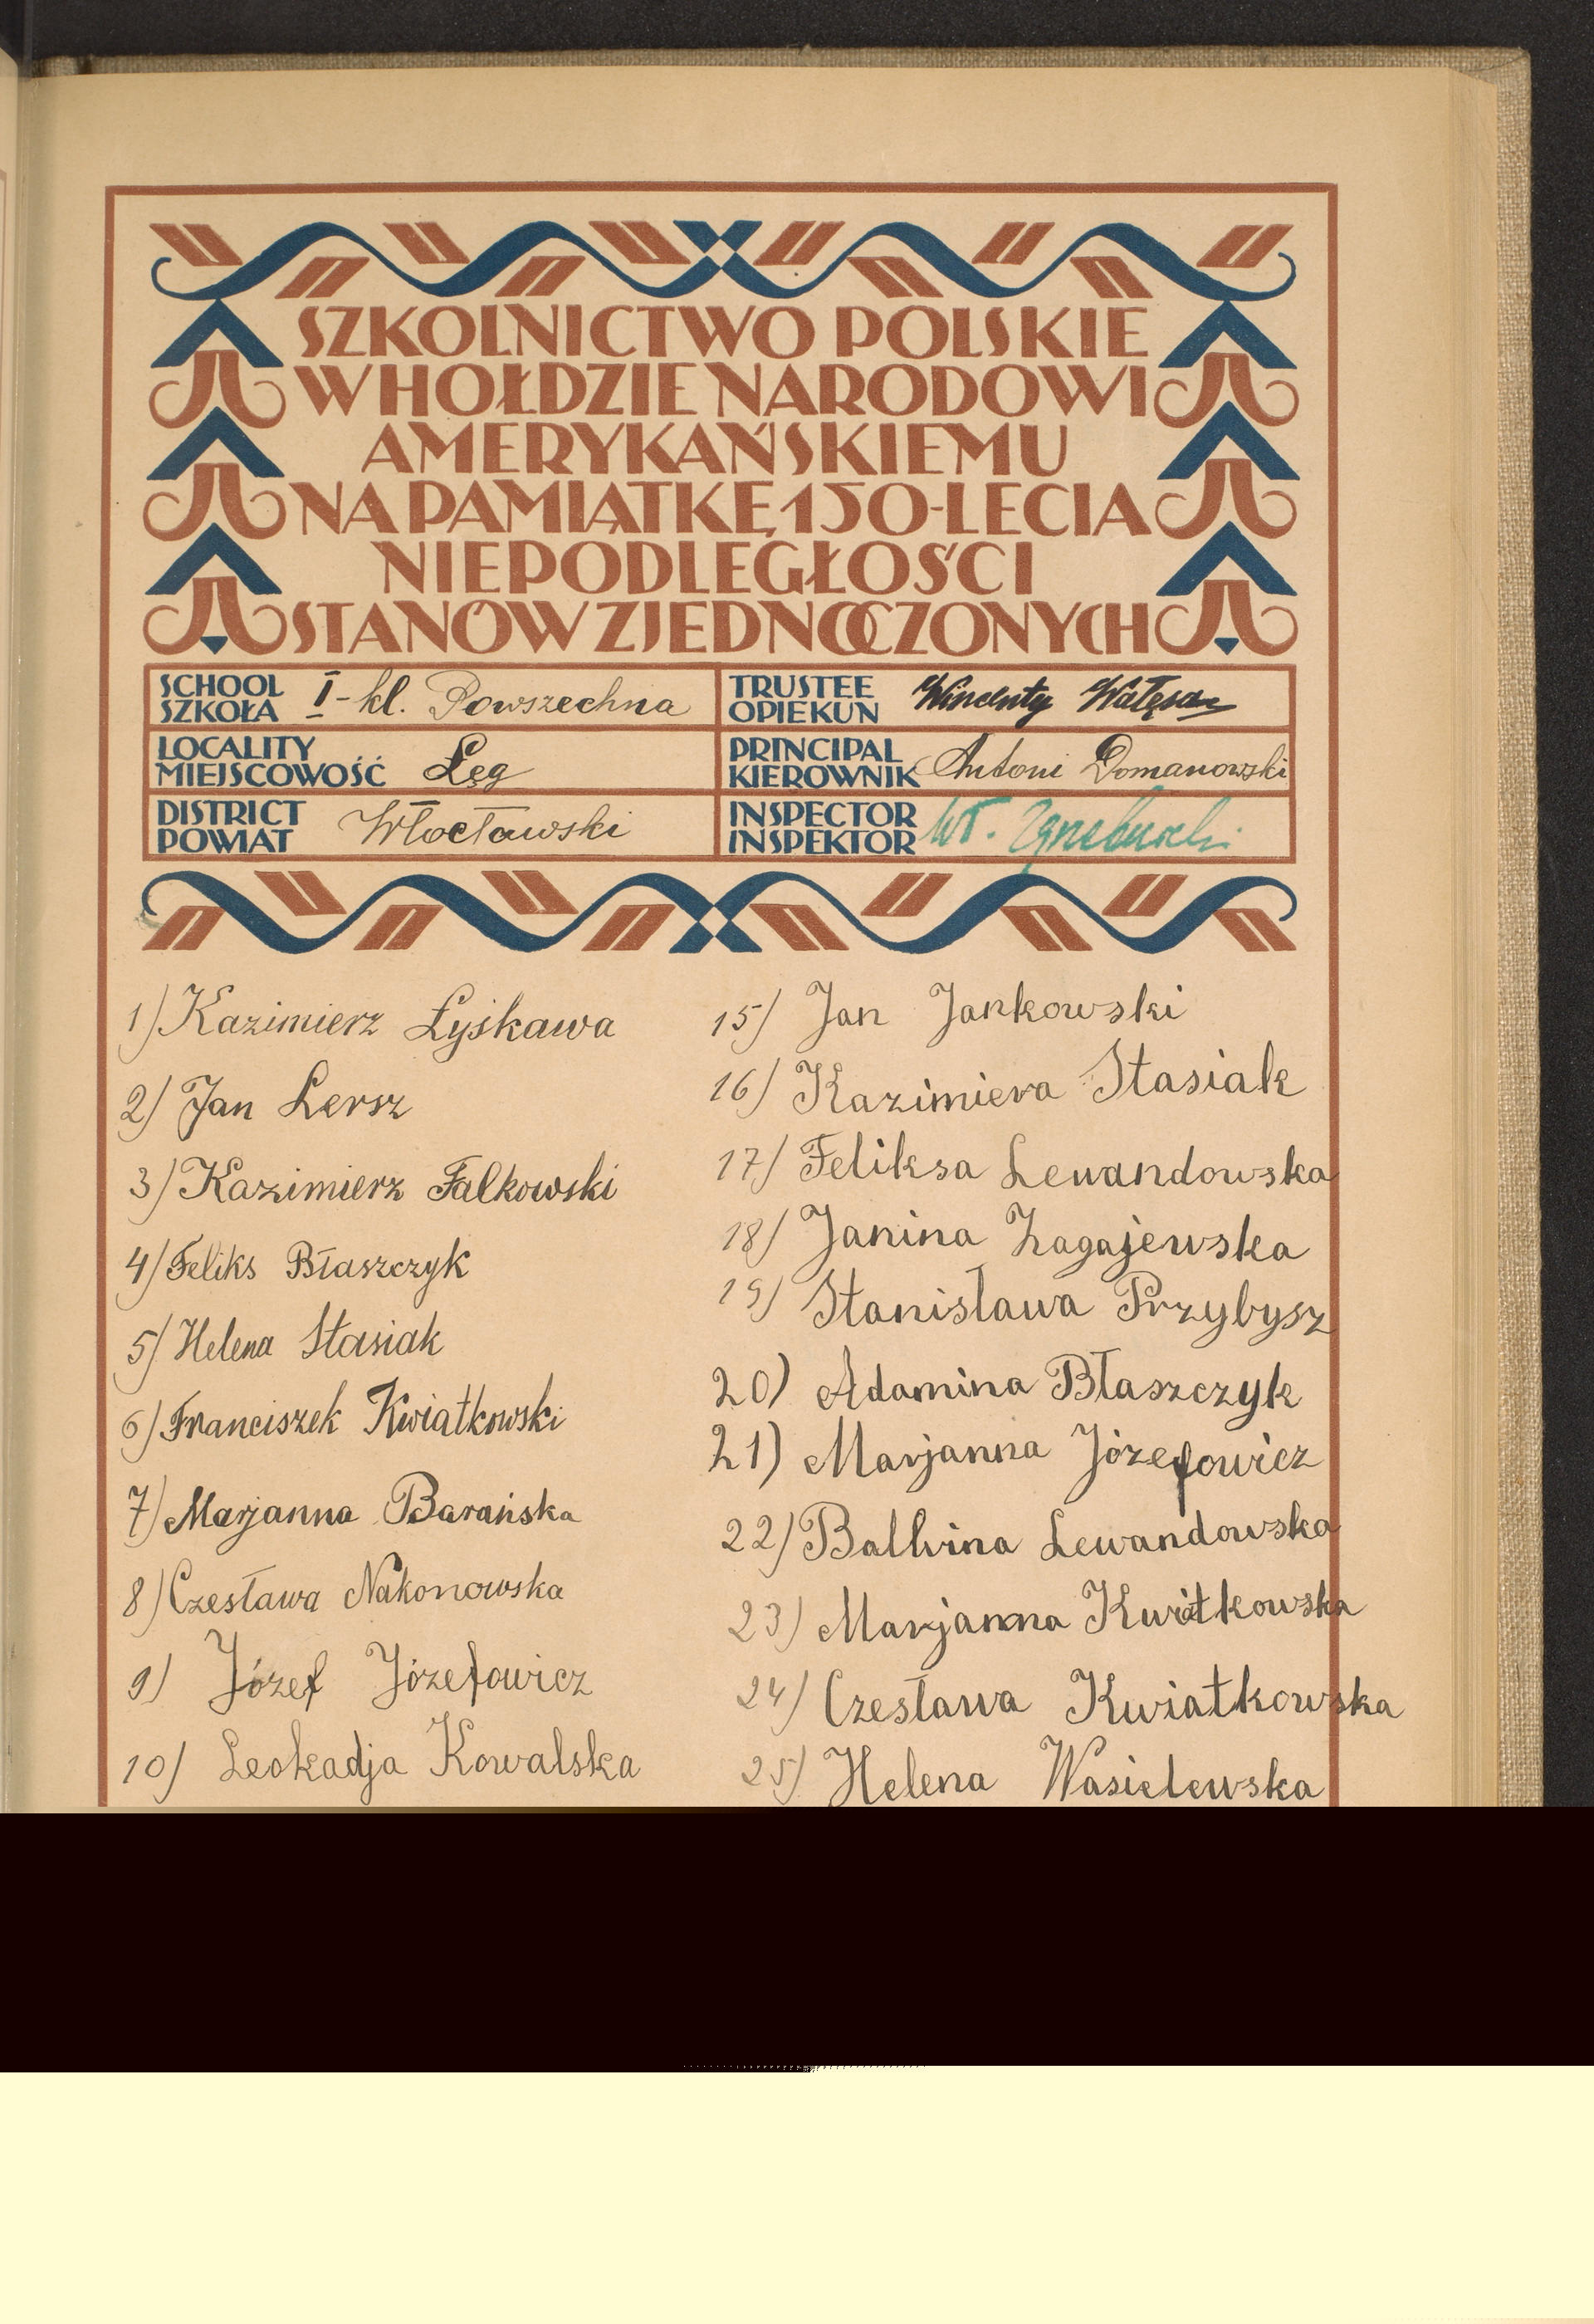 SZKOLNICTWO POLSKIE
W HOŁDZIE NARODOWI
AMERYKAŃSKIEMU
NA PAMIĄTKĘ 150-LECIA
NIEPODLEGŁOŚCI
STANÓW ZJEDNOCZONYCH
SCHOOL
SZKOŁA I-kl. Powszechna
TRUSTEE
OPIEKUN Wincenty Wałęsa
LOCALITY
MIEJSCOWOŚĆ Łęg
PRINCIPAL
KIEROWNIK Antoni Domanowski
DISTRICT
POWIAT Włocławski
INSPECTOR
INSPEKTOR Wł.
1) Kazimierz Łyskawa
2) Jan Lersz
3) Kazimierz Falkowski
4) Feliks Błaszczyk
5) Helena Stasiak
6) Franciszek Kwiatkowski
7) Marjanna Barańska
8) Czesława Nakonowska
9) Józef Józefowicz
10) Leokadja Kowalska
15) Jan Jankowski
16) Kazimiera Stasiak
17) Feliksa Lewandowska
18) Janina Zagajewska
19) Stanisława Przybysz
20) Adamina Błaszczyk
21) Marjanna Józefowicz
22) Balbina Lewandowska
23) Marjanna Kwiatkowska
24) Czesława Kwiatkowska
25) Helena Wasielewska